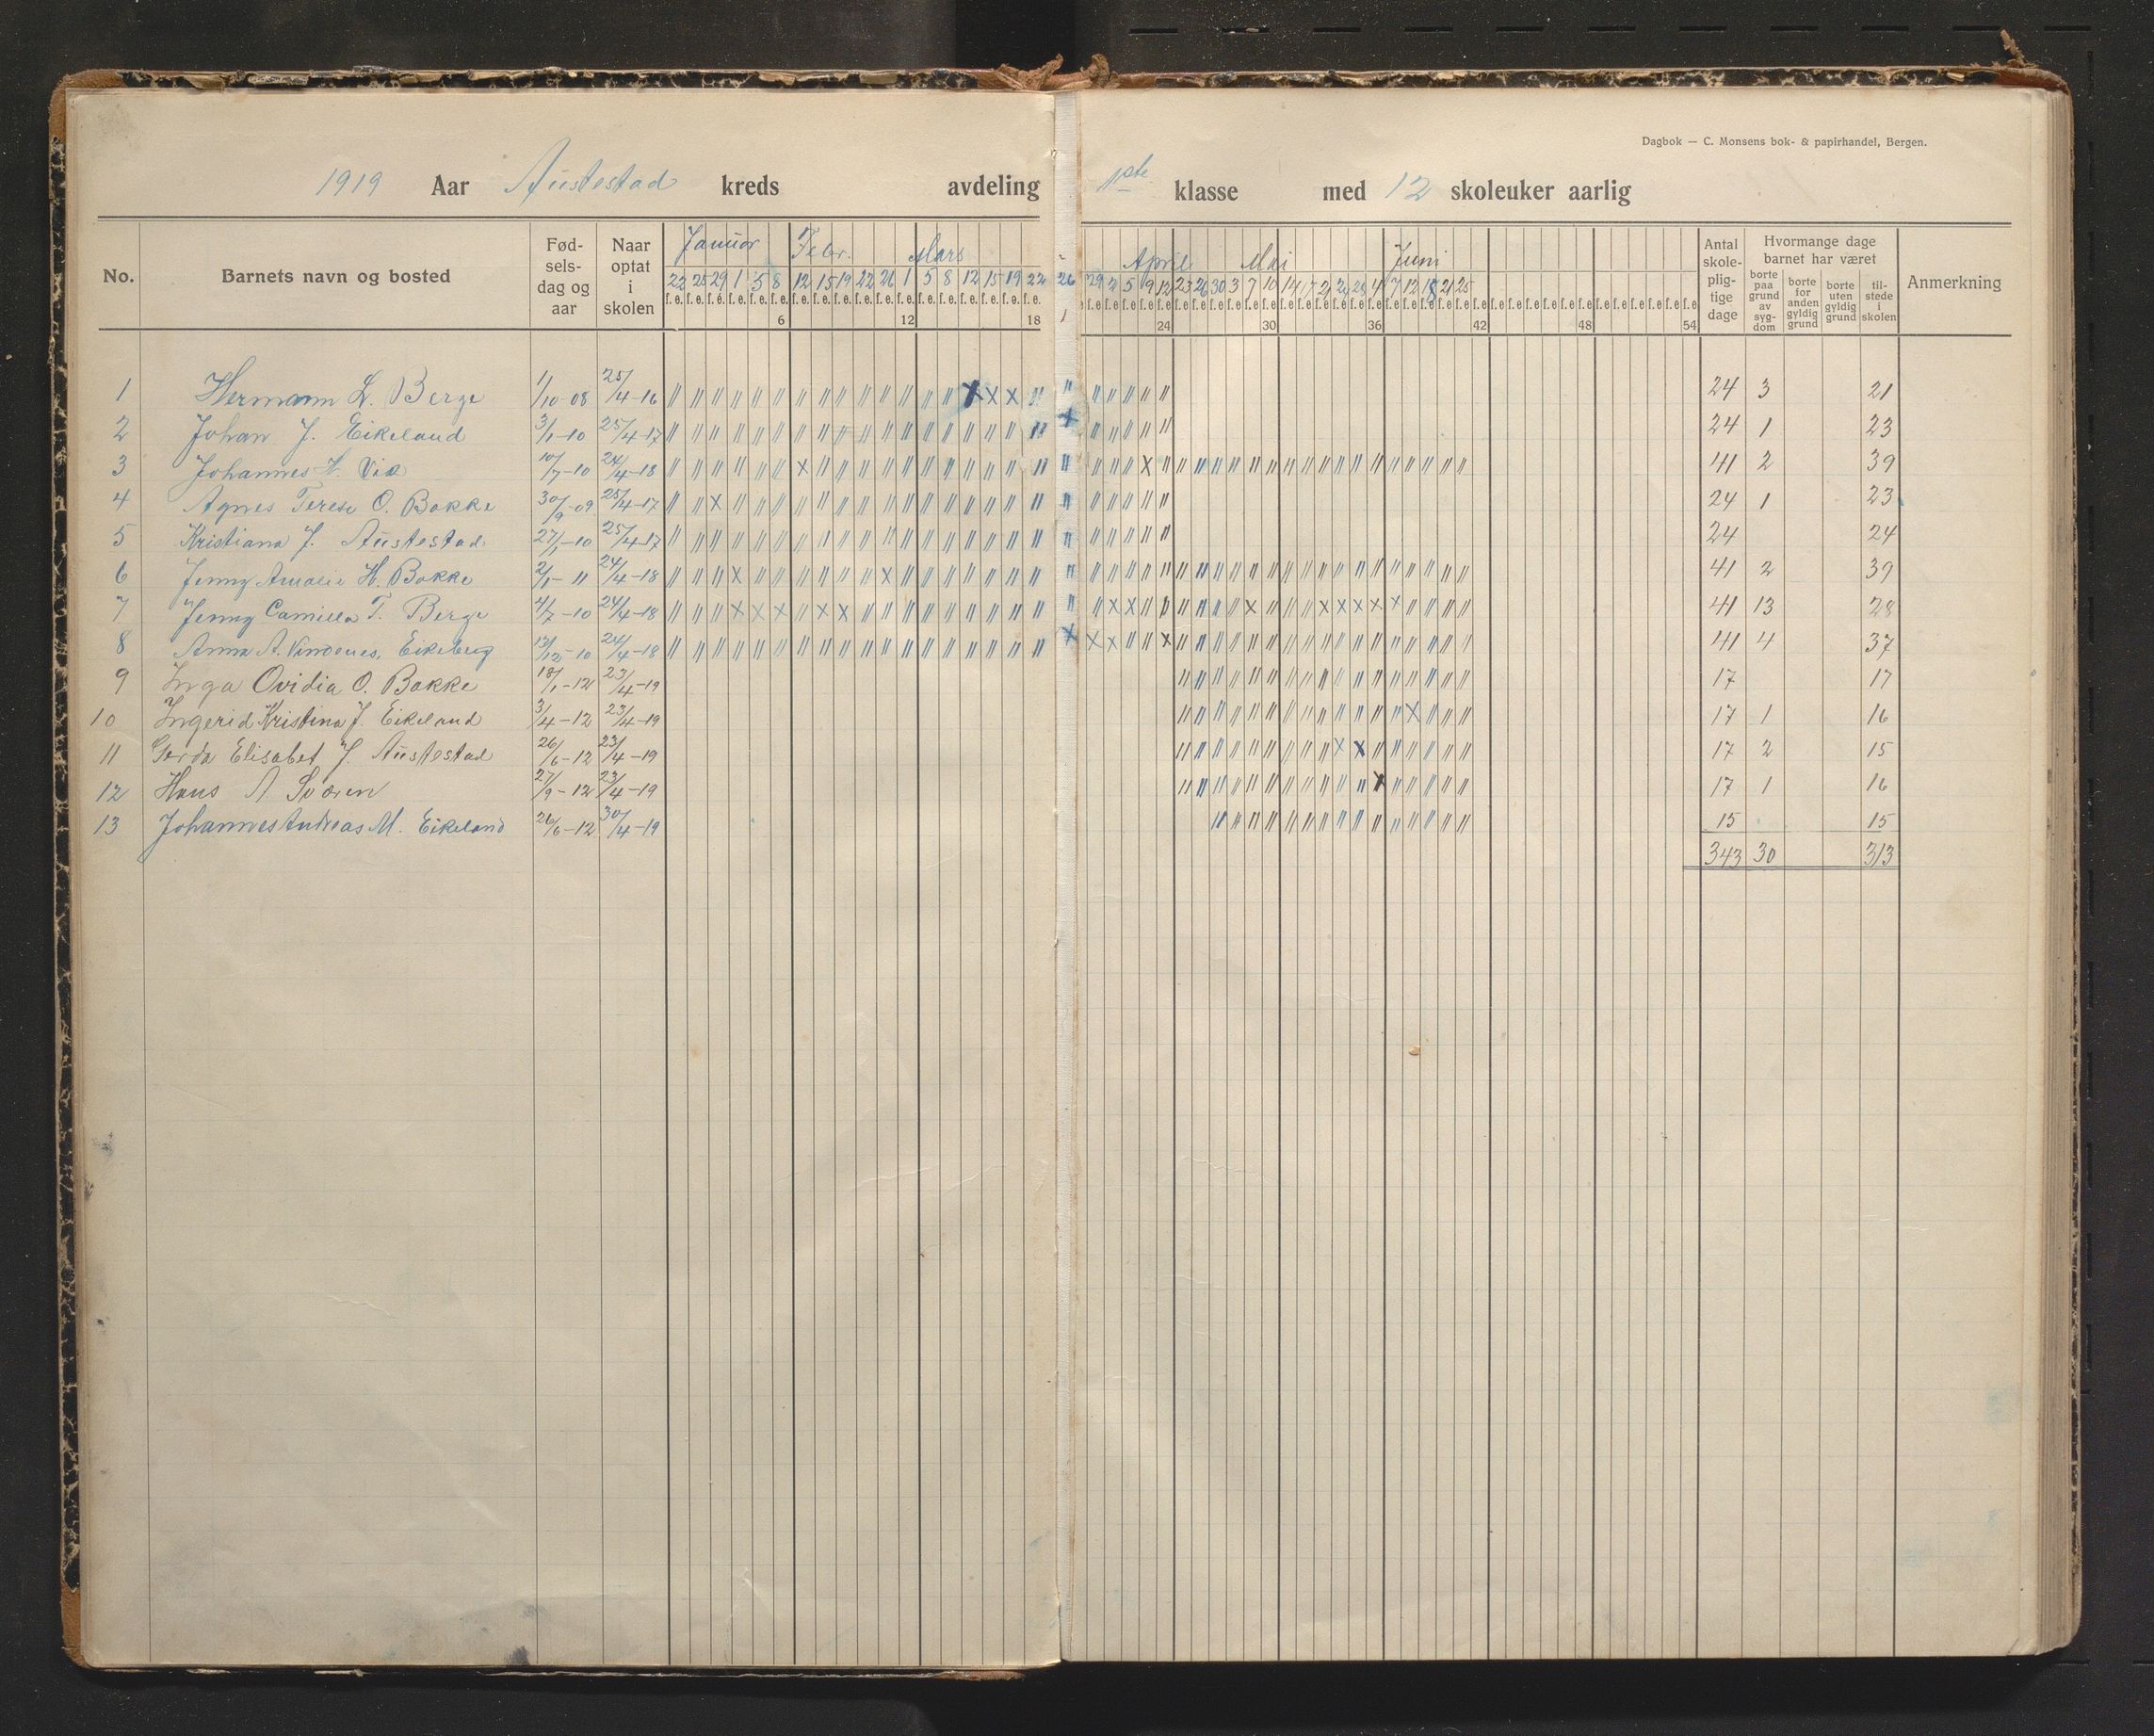 Dagbok — C. Monsens bok- & papirhandel, Bergen.
1919 Aar Austestad kreds avdeling 1ste klasse med 12 skoleuker aarlig
No. Barnets navn og bosted Fødselsdag og aar Naar optat i skolen Antal skolepligtige dage Hvormange dage barnet har været Anmerkning
borte paa grund av sygdom borte for anden gyldig grund borte uten gyldig grund tilstede i skolen
Januar Febr. Mars April Mai Juni
22 25 29 1 5 8 12 15 19 22 26 1 5 8 12 15 19 22 26 29 2 5 9 12 23 26 30 3 7 10 14 17 21 24 28 4 7 12 18 21 25
6 12 18 1 24 30 36 42 48 54
1 Hermann L. Berge 1/10-08 25/4-16 24 3 21
2 Johan J. Eikeland 3/1-10 25/4-17 24 1 23
3 Johannes H. Via 10/7-10 24/4-18 41 2 39
4 Agnes Terese O. Bakke 30/9-09 25/4-17 24 1 23
5 Kristiana J. Austestad 27/1-10 25/4-17 24 24
6 Jenny Amalie H. Bakke 2/1-11 24/4-18 41 2 39
7 Jenny Camilla T. Berge 4/7-10 24/4-18 41 13 28
8 Anna A. Vindenes, Eikeberg 13/12-10 24/4-18 41 4 37
9 Inga Ovidia O. Bakke 18/1-12 23/4-19 17 17
10 Ingerid Kristina J. Eikeland 3/4-12 23/4-19 17 1 16
11 Gerda Elisabet J. Austestad 26/6-12 23/4-19 17 2 15
12 Hans A. Søren 27/9-12 23/4-19 17 1 16
13 Johannes Andreas M. Eikeland 26/6-12 30/4-19 15 15
343 30 313